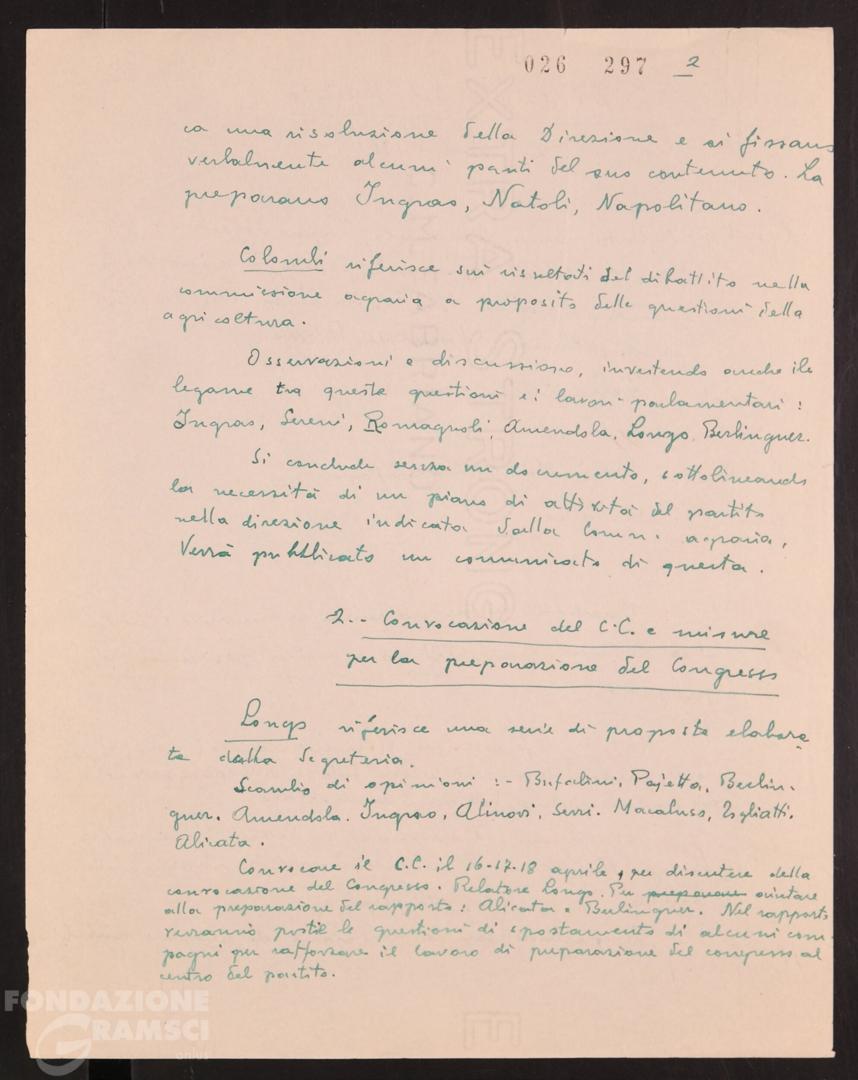 026 297 2
ca una risoluzione della Direzione e si fissano
verbalmente alcuni punti del suo contenuto. La
preparano Ingrao, Natoli, Napolitano.
Colombi riferisce sui risultati del dibattito nella
commissione agraria a proposito delle questioni della
agricoltura.
Osservazioni e discussione, investendo anche il
legame tra queste questioni e i lavori parlamentari:
Ingrao, Sereni, Romagnoli, Amendola, Longo, Berlinguer.
Si conclude senza un documento, sottolineando
la necessità di un piano di attività del partito
nella direzione indicata dalla Comm. agraria.
Verrà pubblicato un comunicato di questa.
2.- Convocazione del C.C. e misure
per la preparazione del Congresso
Longo riferisce una serie di proposte elabora
te dalla Segreteria.
Scambio di opinioni:- Bufalini, Pajetta, Berlin-
guer, Amendola, Ingrao, Alinovi, Serri, Macaluso, Togliatti,
Alicata.
Convocare il C.C. il 16-17-18 aprile, per discutere della
convocazione del Congresso. Relatore Longo. Per preparare aiutare
alla preparazione del rapporto: Alicata e Berlinguer. Nel rapporto
verranno poste le questioni di spostamento di alcuni com-
pagni per rafforzare il lavoro di preparazione del congresso al
centro del partito.
FONDAZIONE
GRAMSCI
onlus